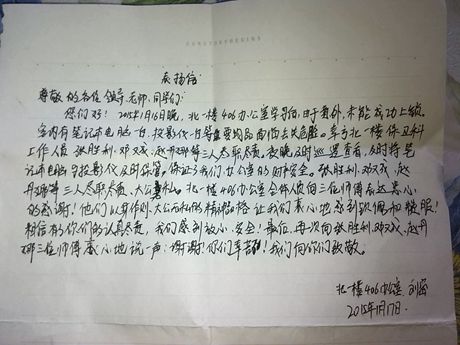 表扬信:
尊敬的各位领导、老师、同学们:
您们好! 2015年1月16日晚,北一楼406办公室学习后,由于意外,未能成功上锁。
室内有笔记本电脑一台、投影仪一台等重要物品面临丢失危险。幸亏北一楼保卫科
工作人员 张胜利、邓义成、赵丹娜等三人尽职尽责,夜晚及时巡逻查看,及时将笔
记本电脑与投影仪及时保管,保证了我们办公室的财产安全。张胜利、邓义成、赵
丹娜等三人尽职尽责、大公无私。北一楼406办公室全体人员向三位师傅表达衷心
的感谢!他们以身作则、大公无私的精神品格让我们衷心地感到钦佩和敬服!
相信有你们的认真尽责,我们感到放心、安全!最后,再次向张胜利、邓义成、赵丹
娜三位师傅衷心地说一声:谢谢!你们辛苦了!我们向你们致敬。
北一楼406办公室
2015年1月17日.